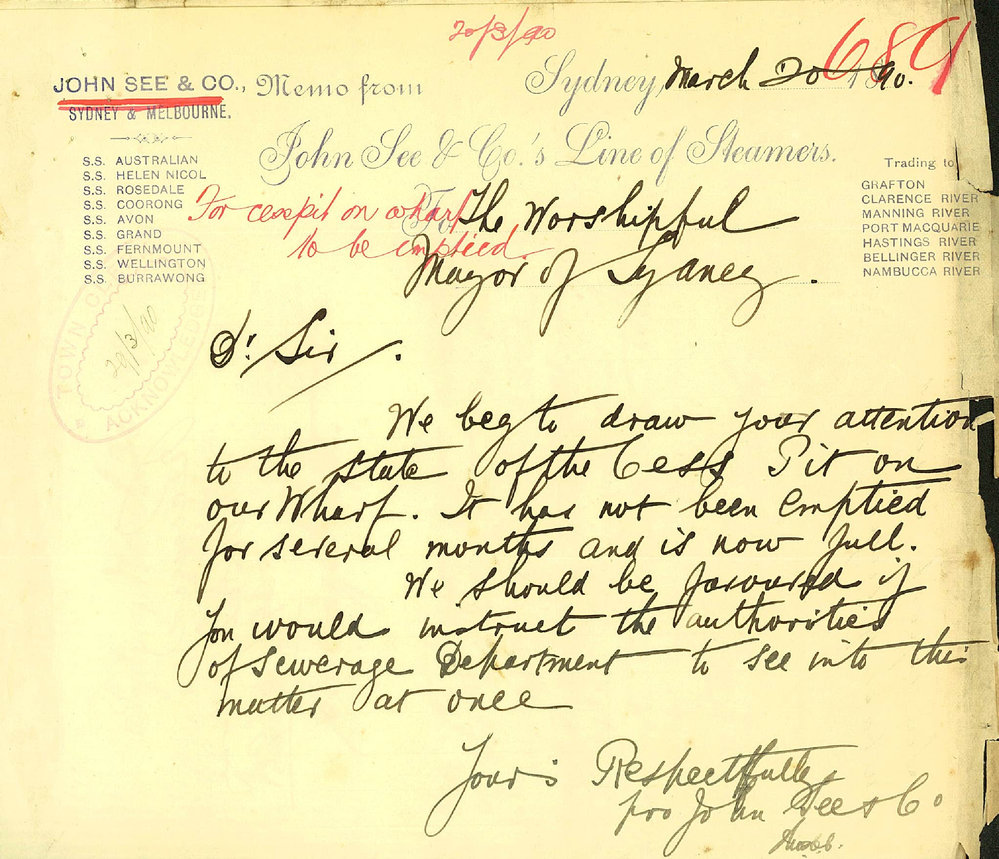 20/3/90
689
JOHN SEE & CO., Memo from
SYDNEY & MELBOURNE.
Sydney, March 20 1890.
John See & Co.'s Line of Steamers.
S.S. AUSTRALIAN
S.S. HELEN NICOL
S.S. ROSEDALE
S.S. COORONG
S.S. AVON
S.S. GRAND
S.S. FERNMOUNT
S.S. WELLINGTON
S.S. BURRAWONG
Trading to
GRAFTON
CLARENCE RIVER
MANNING RIVER
PORT MACQUARIE
HASTINGS RIVER
BELLINGER RIVER
NAMBUCCA RIVER
For cesspit on wharf
to be emptied.
To The Worshipful
Mayor of Sydney.
TOWN C
20/3/90
ACKNOWLEDGE
Dr Sir/.
We beg to draw your attention
to the state of the Cess Pit on
our Wharf. It has not been Emptied
for several months and is now full.
We should be favoured if
you would instruct the authorities
of Sewerage Department to see into this
matter at once
Yours Respectfully
pro John See & Co